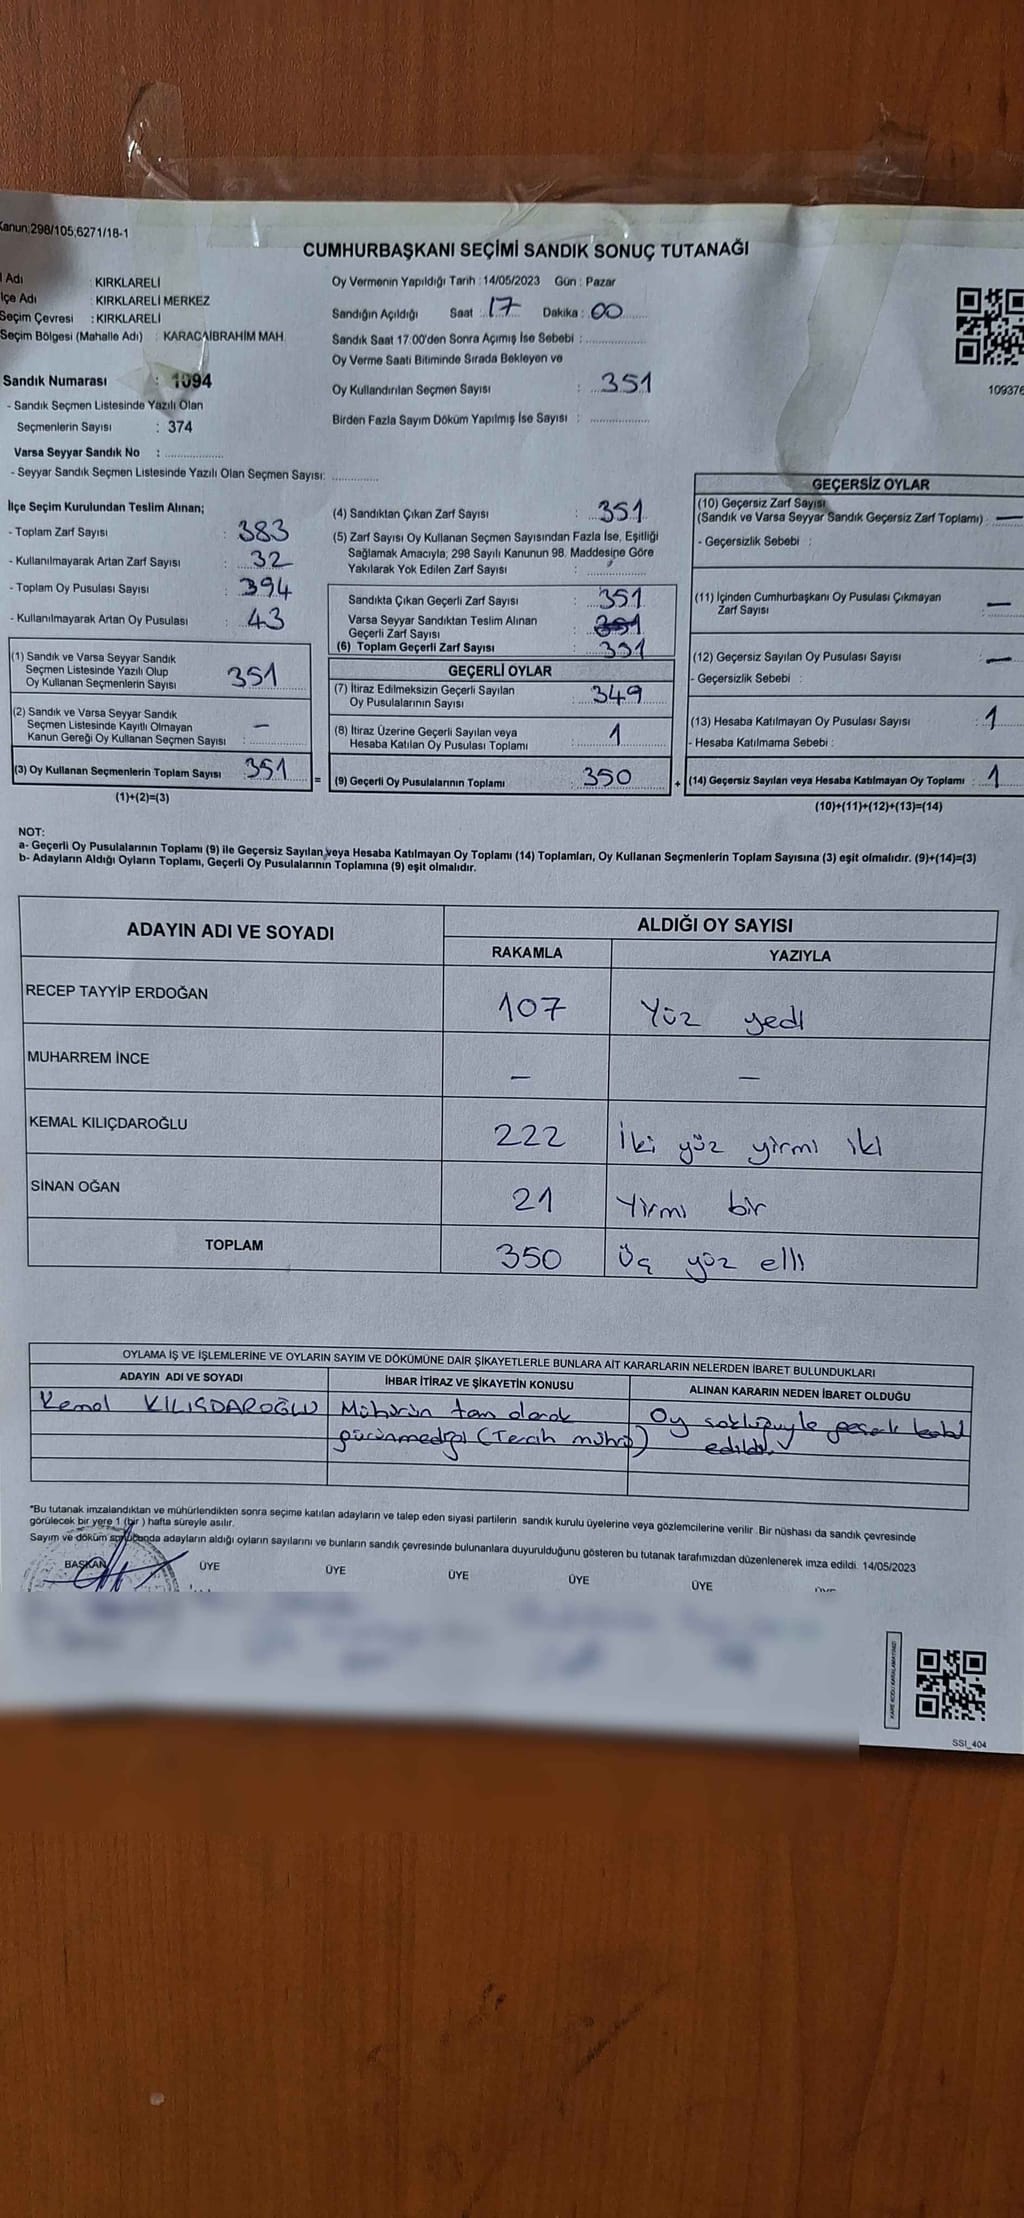 Kanun;298/105,6271/18-1
CUMHURBAŞKANI SEÇİMİ SANDIK SONUÇ TUTANAĞI
l Adı : KIRKLARELİ
lçe Adı : KIRKLARELİ MERKEZ
Seçim Çevresi : KIRKLARELİ
Seçim Bölgesi (Mahalle Adı) : KARACAİBRAHİM MAH
Sandık Numarası : 1094
- Sandık Seçmen Listesinde Yazılı Olan
Seçmenlerin Sayısı : 374
Varsa Seyyar Sandık No :
- Seyyar Sandık Seçmen Listesinde Yazılı Olan Seçmen Sayısı:
Oy Vermenin Yapıldığı Tarih : 14/05/2023 Gün : Pazar
Sandığın Açıldığı Saat : 17 Dakika : 00
Sandık Saat 17.00'den Sonra Açımış İse Sebebi :
Oy Verme Saati Bitiminde Sırada Bekleyen ve
Oy Kullandırılan Seçmen Sayısı : 351
Birden Fazla Sayım Döküm Yapılmış İse Sayısı :
109376
İlçe Seçim Kurulundan Teslim Alınan;
- Toplam Zarf Sayısı : 383
- Kullanılmayarak Artan Zarf Sayısı : 32
- Toplam Oy Pusulası Sayısı : 394
- Kullanılmayarak Artan Oy Pusulası : 43
(1) Sandık ve Varsa Seyyar Sandık
Seçmen Listesinde Yazılı Olup
Oy Kullanan Seçmenlerin Sayısı 351
(2) Sandık ve Varsa Seyyar Sandık
Seçmen Listesinde Kayıtlı Olmayan
Kanun Gereği Oy Kullanan Seçmen Sayısı : —
(3) Oy Kullanan Seçmenlerin Toplam Sayısı 351
(1)+(2)=(3)
(4) Sandıktan Çıkan Zarf Sayısı : 351
(5) Zarf Sayısı Oy Kullanan Seçmen Sayısından Fazla İse, Eşitliği
Sağlamak Amacıyla; 298 Sayılı Kanunun 98. Maddesine Göre
Yakılarak Yok Edilen Zarf Sayısı :
Sandıkta Çıkan Geçerli Zarf Sayısı : 351
Varsa Seyyar Sandıktan Teslim Alınan
Geçerli Zarf Sayısı :
(6) Toplam Geçerli Zarf Sayısı : 351
GEÇERLİ OYLAR
(7) İtiraz Edilmeksizin Geçerli Sayılan
Oy Pusulalarının Sayısı : 349
(8) İtiraz Üzerine Geçerli Sayılan veya
Hesaba Katılan Oy Pusulası Toplamı : 1
= (9) Geçerli Oy Pusulalarının Toplamı 350
GEÇERSİZ OYLAR
(10) Geçersiz Zarf Sayısı
(Sandık ve Varsa Seyyar Sandık Geçersiz Zarf Toplamı) : —
- Geçersizlik Sebebi :
(11) İçinden Cumhurbaşkanı Oy Pusulası Çıkmayan
Zarf Sayısı : —
(12) Geçersiz Sayılan Oy Pusulası Sayısı : —
- Geçersizlik Sebebi :
(13) Hesaba Katılmayan Oy Pusulası Sayısı : 1
- Hesaba Katılmama Sebebi :
+ (14) Geçersiz Sayılan veya Hesaba Katılmayan Oy Toplamı : 1
(10)+(11)+(12)+(13)=(14)
NOT:
a- Geçerli Oy Pusulalarının Toplamı (9) ile Geçersiz Sayılan veya Hesaba Katılmayan Oy Toplamı (14) Toplamları, Oy Kullanan Seçmenlerin Toplam Sayısına (3) eşit olmalıdır. (9)+(14)=(3)
b- Adayların Aldığı Oyların Toplamı, Geçerli Oy Pusulalarının Toplamına (9) eşit olmalıdır.
ADAYIN ADI VE SOYADI ALDIĞI OY SAYISI
RAKAMLA YAZIYLA
RECEP TAYYİP ERDOĞAN 107 Yüz yedI
MUHARREM İNCE — —
KEMAL KILIÇDAROĞLU 222 İki yüz yirmı ıkI
SİNAN OĞAN 21 Yirmı bir
TOPLAM 350 Üç yüz ellı
OYLAMA İŞ VE İŞLEMLERİNE VE OYLARIN SAYIM VE DÖKÜMÜNE DAİR ŞİKAYETLERLE BUNLARA AİT KARARLARIN NELERDEN İBARET BULUNDUKLARI
ADAYIN ADI VE SOYADI İHBAR İTİRAZ VE ŞİKAYETİN KONUSU ALINAN KARARIN NEDEN İBARET OLDUĞU
Kemal KILIÇDAROĞLU Mührün tam olarak Oy sokluğuyla geçerli kabul
görünmediği (Tercih mührü) edildi.
*Bu tutanak imzalandıktan ve mühürlendikten sonra seçime katılan adayların ve talep eden siyasi partilerin sandık kurulu üyelerine veya gözlemcilerine verilir. Bir nüshası da sandık çevresinde
görülecek bir yere 1 (bir ) hafta süreyle asılır.
Sayım ve döküm sonucunda adayların aldığı oyların sayılarını ve bunların sandık çevresinde bulunanlara duyurulduğunu gösteren bu tutanak tarafımızdan düzenlenerek imza edildi. 14/05/2023
BAŞKAN ÜYE ÜYE ÜYE ÜYE ÜYE
SSI_404